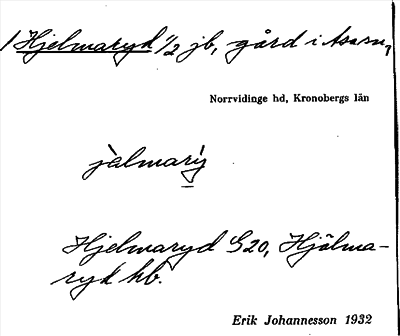 1 Hjelmaryd 1/2 jb, gård i Asa sn,
Norrvidinge hd, Kronobergs län
jàlmarý
Hjelmaryd G20, Hjälma-
ryd hb.
Erik Johannesson 1932